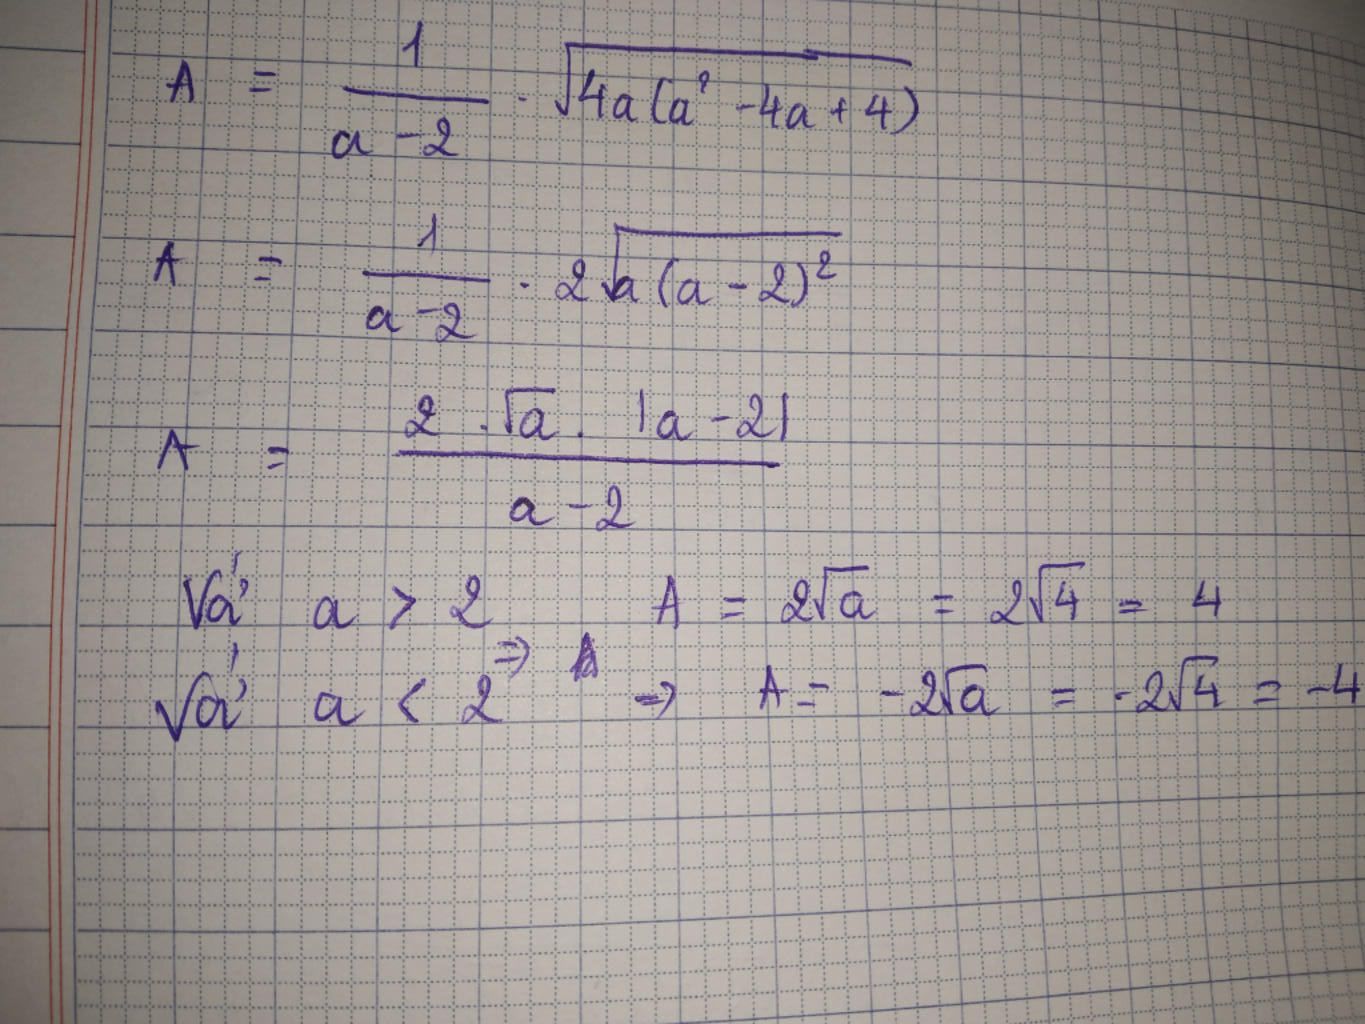 A = 1/(a - 2) . √(4a(a² - 4a + 4))
A = 1/(a - 2) . 2√(a(a - 2)²)
A = (2 . √a . |a - 2|)/(a - 2)
a > 2 A = 2√a = 2√4 = 4
a < 2 ⇒ A = -2√a = -2√4 = -4